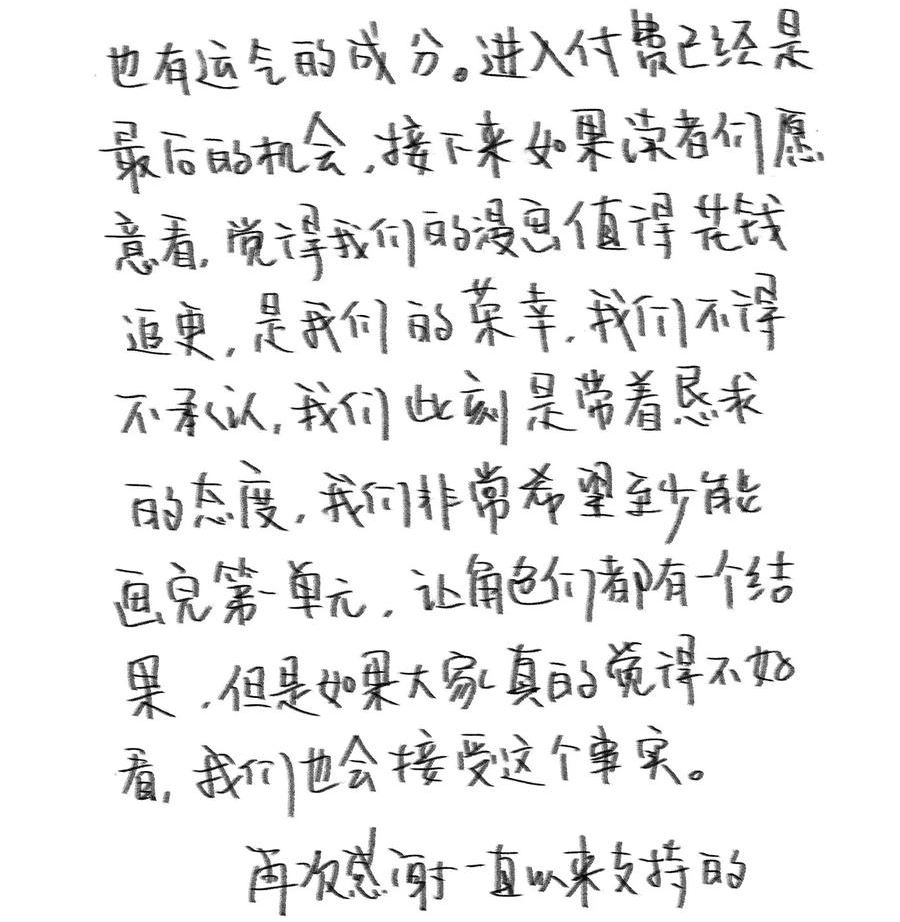 也有运气的成分。进入付费已经是
最后的机会,接下来如果读者们愿
意看,觉得我们的漫画值得花钱
追更,是我们的荣幸,我们不得
不承认,我们此刻是带着恳求
的态度,我们非常希望至少能
画完第一单元,让角色们都有一个结
果,但是如果大家真的觉得不好
看,我们也会接受这个事实。
再次感谢一直以来支持的